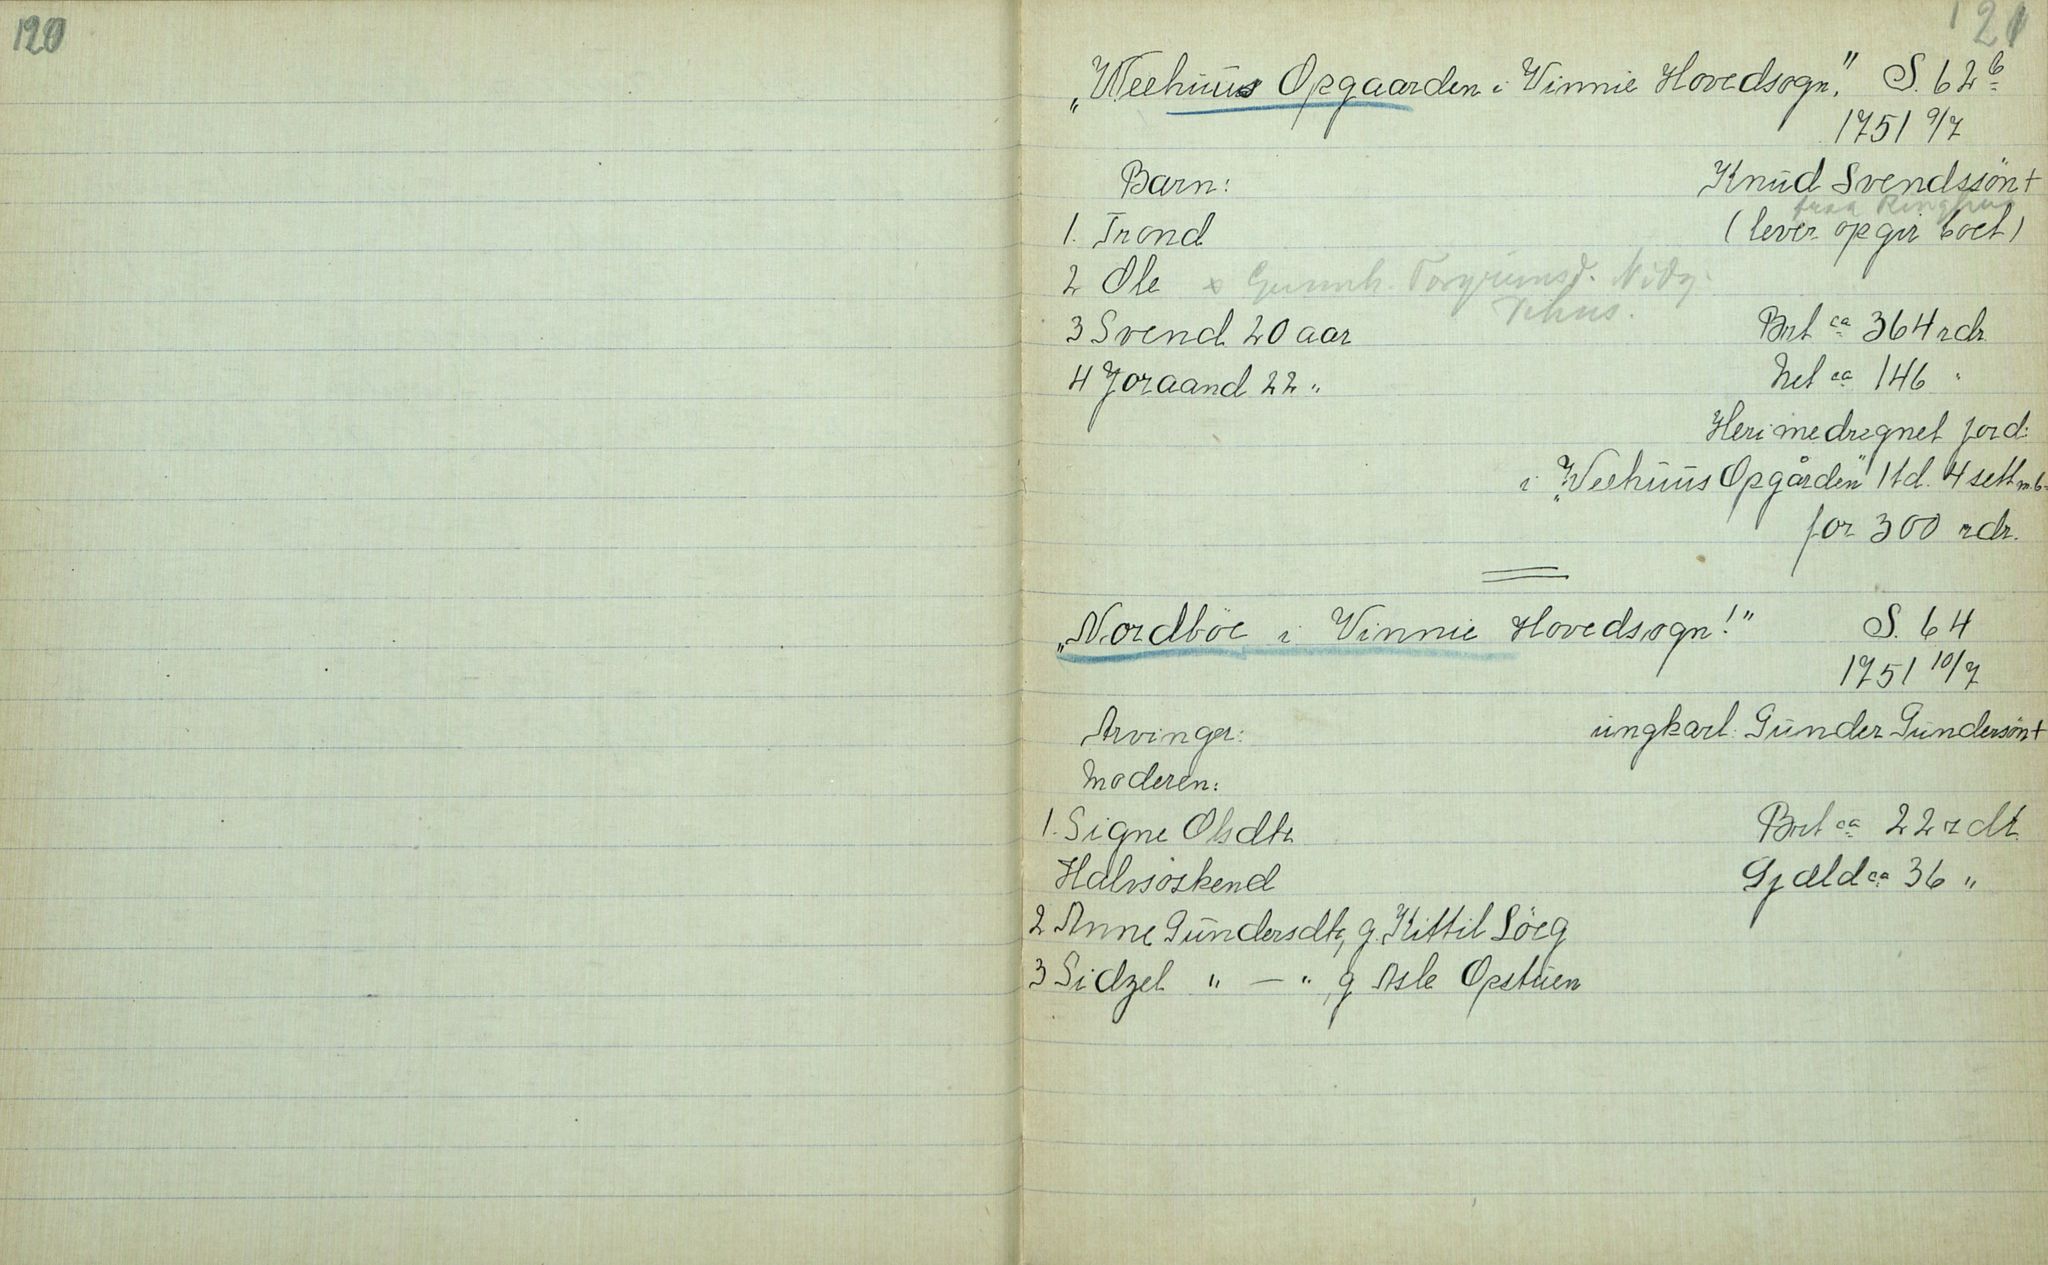 120
121
„Weehuus Opgaarden i Vinnie Hovedsogn." S. 62 b
1751 9/7
Barn: Knud Svendssön +
fraa Ringhus
1. Trond (lever opgir boet)
2 Ole x Gunnh. Torgrimsd. Nidg.
Vehus.
3 Svend 20 aar Brt ca 364 rdr
4 Joraand 22 " Net ca 146 "
Heri medregnet jord:
i „Weehuus Opgården" 1 td. 4 sett m. b-
for 300 rdr.
„Nordböe i Vinnie Hovedsogn!" S. 64
1751 10/7
Arvinger: ungkarl. Gunder Gundersön +
Moderen:
1. Signe Olsdtr Brt ca 22 rdr
Halvsöskend Gjæld ca 36 "
2 Anne Gundersdtr, g. Kittil Löeg
3 Sidzel " — ", g Asle Opstuen